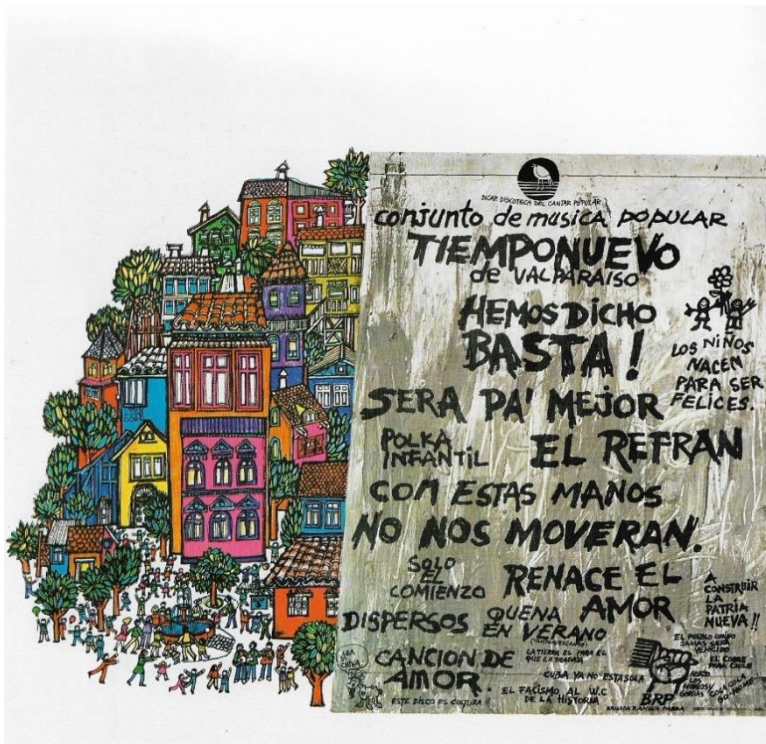 DICAP DISCOTECA DEL CANTAR POPULAR
conjunto de musica popular
TIEMPONUEVO
de VALPARAISO
HEMOS DICHO
BASTA!
LOS NIÑOS
NACEN
PARA SER
FELICES.
SERA PA' MEJOR
POLKA
INFANTIL
EL REFRAN
CON ESTAS MANOS
NO NOS MOVERAN.
SOLO
EL
COMIENZO
RENACE EL
AMOR
A
CONSTRUIR
LA
PATRIA
NUEVA!!
DISPERSOS
QUENA
EN VERANO
CANCION DE
AMOR
LA TIERRA EL PARA EL
QUE LA TRABAJA
CUBA YA NO ESTA SOLA
EL FACISMO AL W.C
DE LA HISTORIA
ESTE DISCO ES CULTURA!!
EL PUEBLO UNIDO
JAMAS SERA
VENCIDO
EL COBRE
PARA CHILE
BRP
BRIGADA RAMONA PARRA